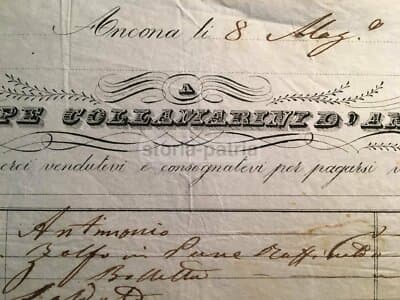 Ancona li 8 Mag.o
A
PE COLLAMARINI D'AN
storia-patria
erci vendutevi e consegnatevi per pagarsi
Antimonio
Zolfo in Pane Raffinato
Bolletta